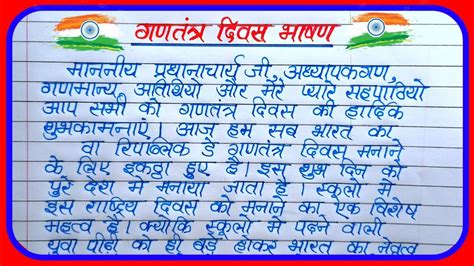 गणतंत्र दिवस भाषण
माननीय प्रधानाचार्य जी, अध्यापकगण,
गणमान्य अतिथियो और मेरे प्यारे सहपाठियो
आप सभी को गणतंत्र दिवस की हार्दिक
शुभकामनाएं। आज हम सब भारत का
वा रिपब्लिक डे गणतंत्र दिवस मनाने
के लिए इकठ्ठा हुए है। इस शुभ दिन को
पुरे देश में मनाया जाता है। स्कूलो में
इस राष्ट्रिय दिवस को मनाने का एक विशेष
महत्व है। क्योंकि स्कूलो में पढ़ने वाली
युवा पीढ़ी को ही बड़े होकर भारत का नेतृत्व